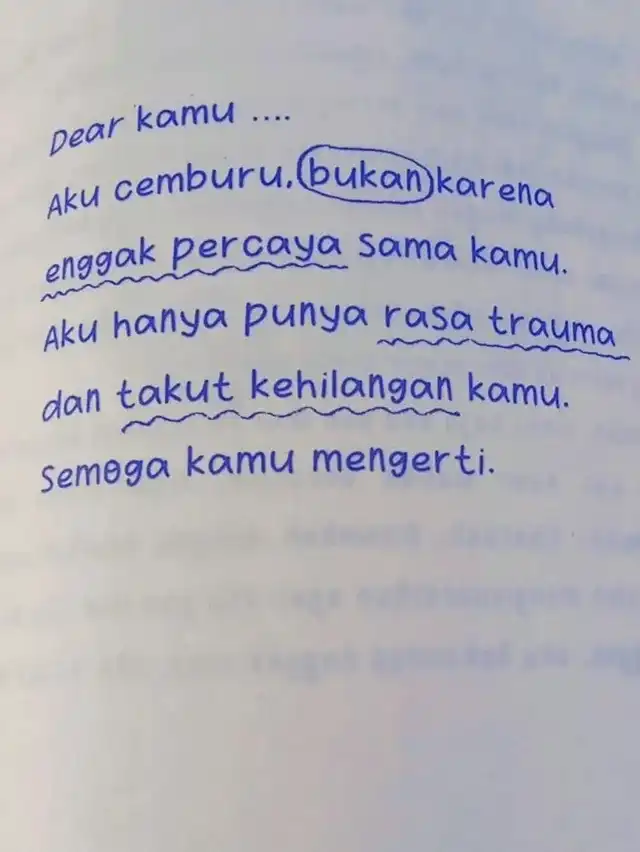 Dear kamu ....
Aku cemburu, bukan karena
enggak percaya sama kamu.
Aku hanya punya rasa trauma
dan takut kehilangan kamu.
Semoga kamu mengerti.